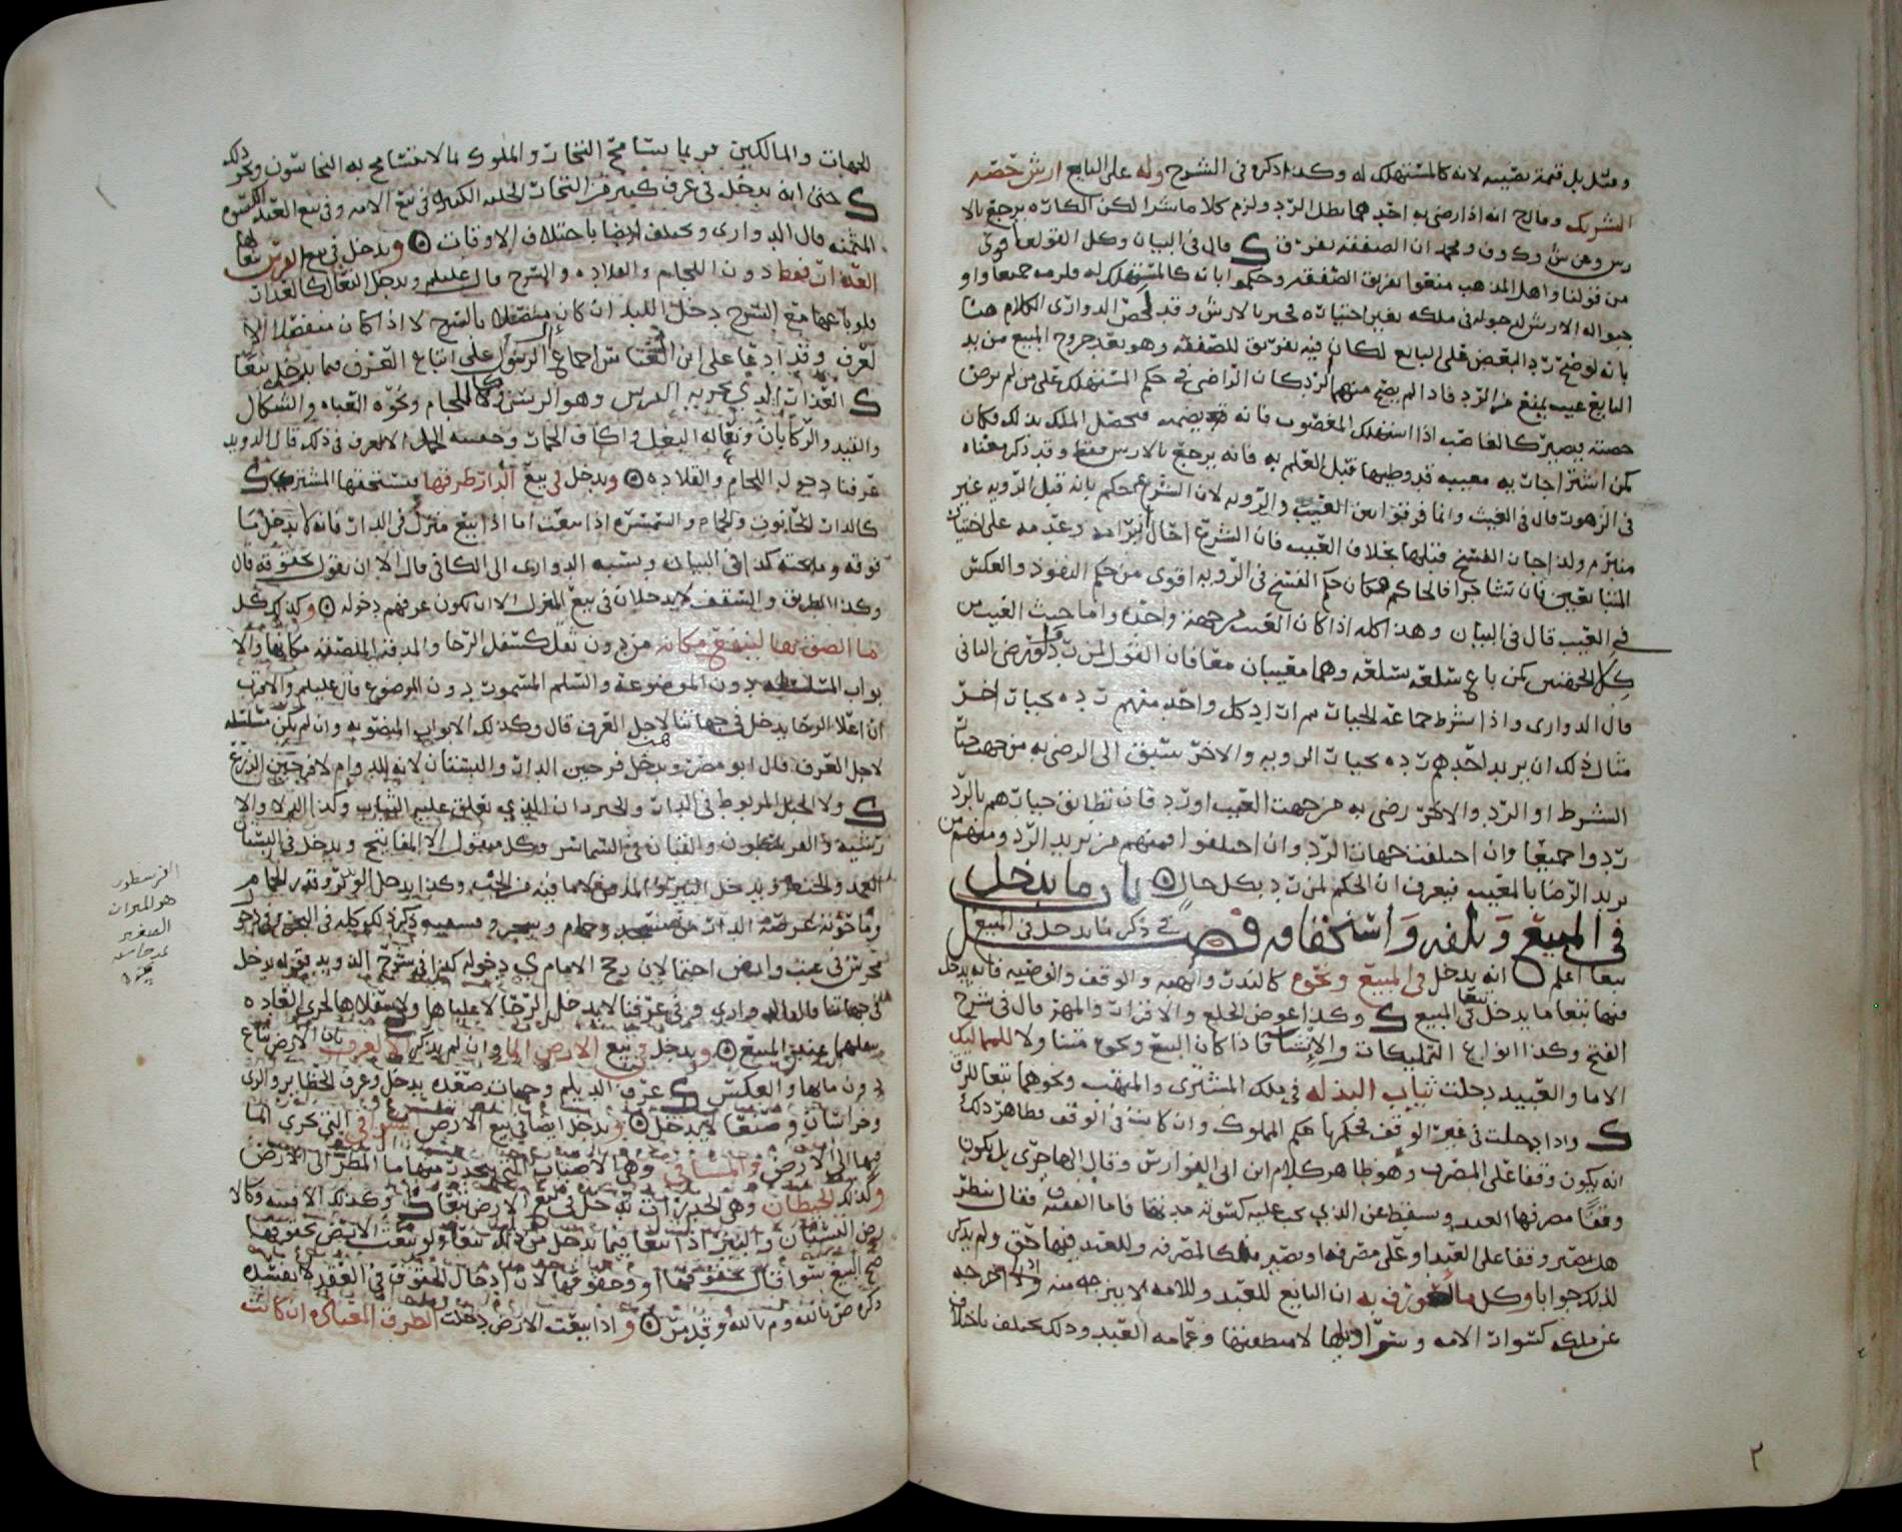 ومثل بل قيمة نصيبه لانه كالمستهلك له وكذا ذكره في الشرح وله على البايع ارش حصته
الشريك وفالح انه اذا رضي به احدهما بطل الرد ولزم كلا ما شرا لكن الكاره يرجع بالا
رس وعن ش وك وف ومحمد ان الصفقه تفرق ك قال في البيان وكل القولين اقوى
من قولنا واهل المذهب منعوا تفريق الصفقه وحكموا بانه كالمستهلك له فلزمه جميعا واو
جبوا له الارش لدخوله في ملكه بغير اختياره فجبر بالارش وقد لخص الدواري الكلام هنا
بانه لو صح رد البعض على البايع لكان فيه تفريق للصفقه وهو بعد خروج المبيع من يد
البايع عيب يمنع من الرد فاذا لم يصح منهم الرد كان الراضي في حكم المستهلك على من لم يرض
حصته فيصير كالغاصب اذا استهلك المغصوب فانه يضمنه فيحصل الملك بذلك فكان
كمن اشترا جاريه معيبه قد وطيها قبل العلم به فانه يرجع بالارش فقط وقد ذكر معناه
في الزهور قال في الغيث وانما فرقوا بين العيب والرويه لان الشرع حكم بانه قبل الرويه غير
منبرم ولذا جاز الفسخ قبلها بخلاف العيب فان الشرع احال ابرامه وعدمه على اختيار
المتبايعين فان تشاجرا فالحاكم فكان حكم الفسخ في الرويه اقوى من حكم النفوذ والعكس
في العيب قال في البيان وهذا كله اذا كان العيب من جهة واحده واما حيث العيب من
كلا الجهتين كمن باع سلعه بسلعه وهما معيبان معا فان القول لمن رد ولو رضي الثاني
قال الدواري واذا اشترط جماعه الخيار ثم اراد كل واحد منهم رده بخيار اخر
مثال ذلك ان يريد احدهم رده بخيار الرويه والاخر سبق الى الرضى به من جهة خيار
الشرط او الرد والاخر رضي به من جهت العيب او رد فان تطابق خيارهم بالرد
ردوا جميعا وان اختلفت جهات الرد وان اختلفوا فمنهم من يريد الرد ومنهم من
يريد الرضا بالمعيب فيعرف ان الحكم لمن رد بكل حال باب ما يدخل
في المبيع وتلفه واستحقاقه فصل في ذكر ما يدخل في المبيع
تبعا اعلم انه يدخل في المبيع ونحوه كالنذر والهبه والوقف والوصيه فانه يدخل
فيها تبعا ما يدخل في المبيع ك وكذا عوض الخلع والاقرار والمهر قال في شرح
الفتح وكذا انواع التمليكات والانشات فاذا كان البيع ونحوه متناولا للمماليك
الاما والعبيد دخلت ثياب البذله في ملك المشتري والمتهب ونحوهما تبعا للرق
ك واذا دخلت في غير الوقف فحكمها حكم المملوك وان كانت في الوقف فظاهر ذلك
انه يكون وقفا على المصرف وهو ظاهر كلام ابن ابي الفوارس وقال الهاجري بل يكون
وقفا مصرفها العبد ويسقط عن الذي يجب عليه كسوته مده بقا فاما الفقيه فقال ينظر
هل تصير وقفا على العبد او على مصرفه او تصير ملكا لمصرفه وللعبد فيها حق ولم يذكر
لذلك جوابا وكل ما تعورف به ان البايع للعبد وللامه لا ينزعه منه ولا اخرجه
عن ملكه كسوار الامه وسراويلها لا منطقتها وعمامه العبد وذلك يختلف باختلاف
الجهات والمالكين فربما يتسامح التجار والملوك بما لا يتسامح به النخاسون ونحو ذلك
ك حتى انه يدخل في عرف كثير من التجار الحليه الكثيره في بيع الامه وفي بيع العبد الكسوه
المثمنه قال الدواري ويختلف ايضا باختلاف الاوقات وبدخل في بيع الفرس تبعا لها
العذار فقط دون اللجام والقلاده والسرج قال عليلم ويدخل النعال كالعذار
فلو باعها مع السرج دخل اللبد ان كان متصلا بالسرج لا اذا كان منفصلا الا
لعرف وقد ادعا على ابن العباس اجماع الرسول على اتباع العرف فيما يدخل تبعا
ك العذار الذي يجر به الفرس وهو الرسن وكاللجام ونحوه العباه والشكال
والقيد والركابان ونعاله البغل واكاف الحمار وخمسه الجمل الا لعرف في ذلك قال الدويد
عرفنا دخول اللجام والقلاده ويدخل في بيع الدار طرقها فيستحقها المشتري ك
كالدار الحانوت والحمام والسمسره اذا بيعت اما اذا بيع منزل في الدار فانه لا يدخل ما
فوقه وما تحته كذا في البيان ونسبه الدواري الى الكافي قال الا ان يقول بحقوقه قال
وكذا الطريق والسقف لا يدخلان في بيع المنزل الا ان يكون عرفهم دخوله وكذلك كل
ما الصق بها لينفع مكانه من دون نقل كسفل الرحا والمدقه الملصقه مكانها والا
بواب المسلسله دون الموضوعه والسلم المسمور دون الموضوع قال عليلم والاقرب
ان اعلا الرحا يدخل في جهاتنا لاجل العرف قال وكذلك الابواب المنصوبه وان لم تكن مسلسله
لاجل العرف قال ابو مضر ويدخل فرجين الدار والبستان لانه للدوام لا فرجين الزرع
ك ولا الحبل المربوط في الدار والجردان الذي تعلق عليه الثياب وكذا الدلا والا
رشيه والفرسطون والقبان في السماسر وكل منقول الا المفاتيح ويدخل في البستان
وما حوته عرصه الدار من مسجد وحمام وبير
في جهاتنا قال الدواري وفي عرفنا لا يدخل الرحا لا علياها ولا سفلاها لجري العاده
بنقلهما عند البيع ويدخل في بيع الارض الما وان لم يذكر الا لعرف بان الارض تباع
دون مائها والعكس ك عرف الديلم وجهات صعده يدخل وعرف الحظاير والري
وخراسان وصنعا لا يدخل ويدخل ايضا في بيع الارض السواقي التي تجري الما
فيها الى الارض والمساقي وهي الاصباب التي ينحدر منها ما المطر الى الارض
وكذلك الحيطان وهي الجدرات تدخل في بيع الارض تبعا ك وكذلك الافنيه وكالا
رض البستان والبير اذا بيعا فيما يدخل من ذلك تبعا ولو بيعت الارض بحقوقها
صح البيع سوا قال بحقوقها او وحقوقها لان ادخال الحقوق في العقد لا يفسده
ذكره ص بالله وم بالله وقد مر واذا بيعت الارض دخلت الطرق المعتاده ان كانت
الفرسطون
هو الميزان
الصغير
٢